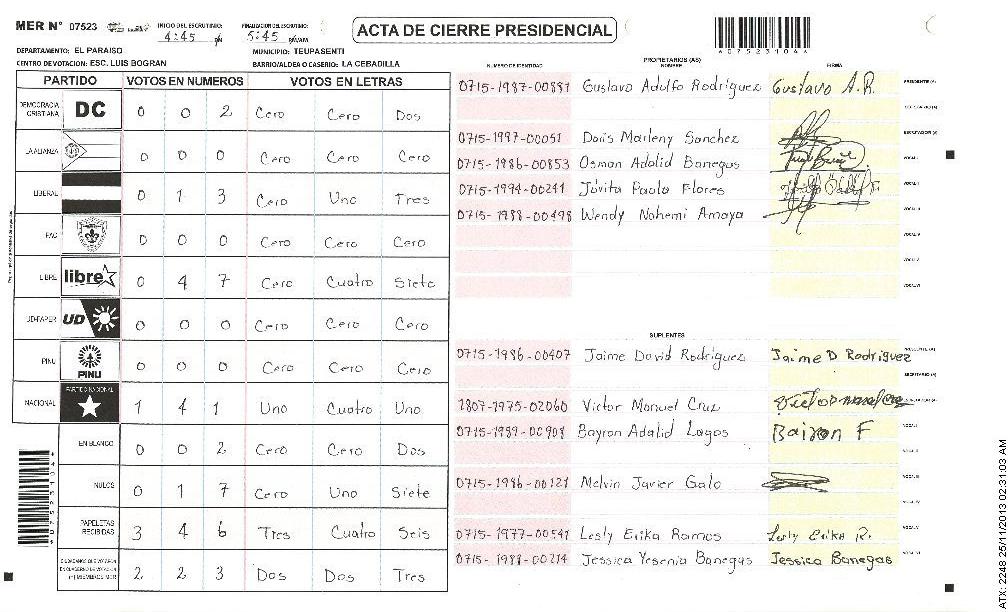 MER Nº 07523 INICIO DEL ESCRUTINIO: 4:45 PM FINALIZACION DEL ESCRUTINIO: 5:45 P.M/A.M. ACTA DE CIERRE PRESIDENCIAL 4075231044
DEPARTAMENTO: EL PARAISO MUNICIPIO: TEUPASENTI
CENTRO DE VOTACION: ESC. LUIS BOGRAN BARRIO/ALDEA O CASERIO: LA CEBADILLA
PARTIDO VOTOS EN NUMEROS VOTOS EN LETRAS
DEMOCRACIA CRISTIANA DC 0 0 2 Cero Cero Dos
LA ALIANZA 0 0 0 Cero Cero Cero
LIBERAL 0 1 3 Cero Uno Tres
PAC 0 0 0 Cero Cero Cero
LIBRE libre 0 4 7 Cero Cuatro Siete
UD-FAPER UD 0 0 0 Cero Cero Cero
PINU PINU 0 0 0 Cero Cero Cero
NACIONAL PARTIDO NACIONAL 1 4 1 Uno Cuatro Uno
EN BLANCO 0 0 2 Cero Cero Dos
NULOS 0 1 7 Cero Uno Siete
PAPELETAS RECIBIDAS 3 4 6 Tres Cuatro Seis
CIUDADANOS QUE VOTARON EN CUADERNO DE VOTACION (+) MIEMBROS MER 2 2 3 Dos Dos Tres
PROPIETARIOS (AS)
NUMERO DE IDENTIDAD NOMBRE FIRMA
0715-1987-00881 Gustavo Adolfo Rodriguez Gustavo A.R. PRESIDENTE (A)
SECRETARIO (A)
0715-1997-00051 Doris Marleny Sanchez ESCRUTADOR (A)
0715-1986-00853 Osman Adalid Banegas VOCAL I
0715-1994-00241 Jóvita Paola Flores VOCAL II
0715-1988-00498 Wendy Nohemi Amaya VOCAL III
VOCAL IV
VOCAL V
VOCAL VI
SUPLENTES
0715-1986-00407 Jaime David Rodriguez Jaime D Rodriguez PRESIDENTE (A)
SECRETARIO (A)
1807-1975-02060 Victor Manuel Cruz
0715-1989-00908 Bayron Adalid Lagos Bairon F VOCAL I
VOCAL II
0715-1986-00121 Melvin Javier Galo VOCAL III
VOCAL IV
0715-1977-00541 Lesly Erika Ramos Lesly Erika R. VOCAL V
0715-1988-00214 Jessica Yesenia Banegas Jessica Banegas VOCAL VI
ATX: 2248 25/11/2013 02:31:03 AM